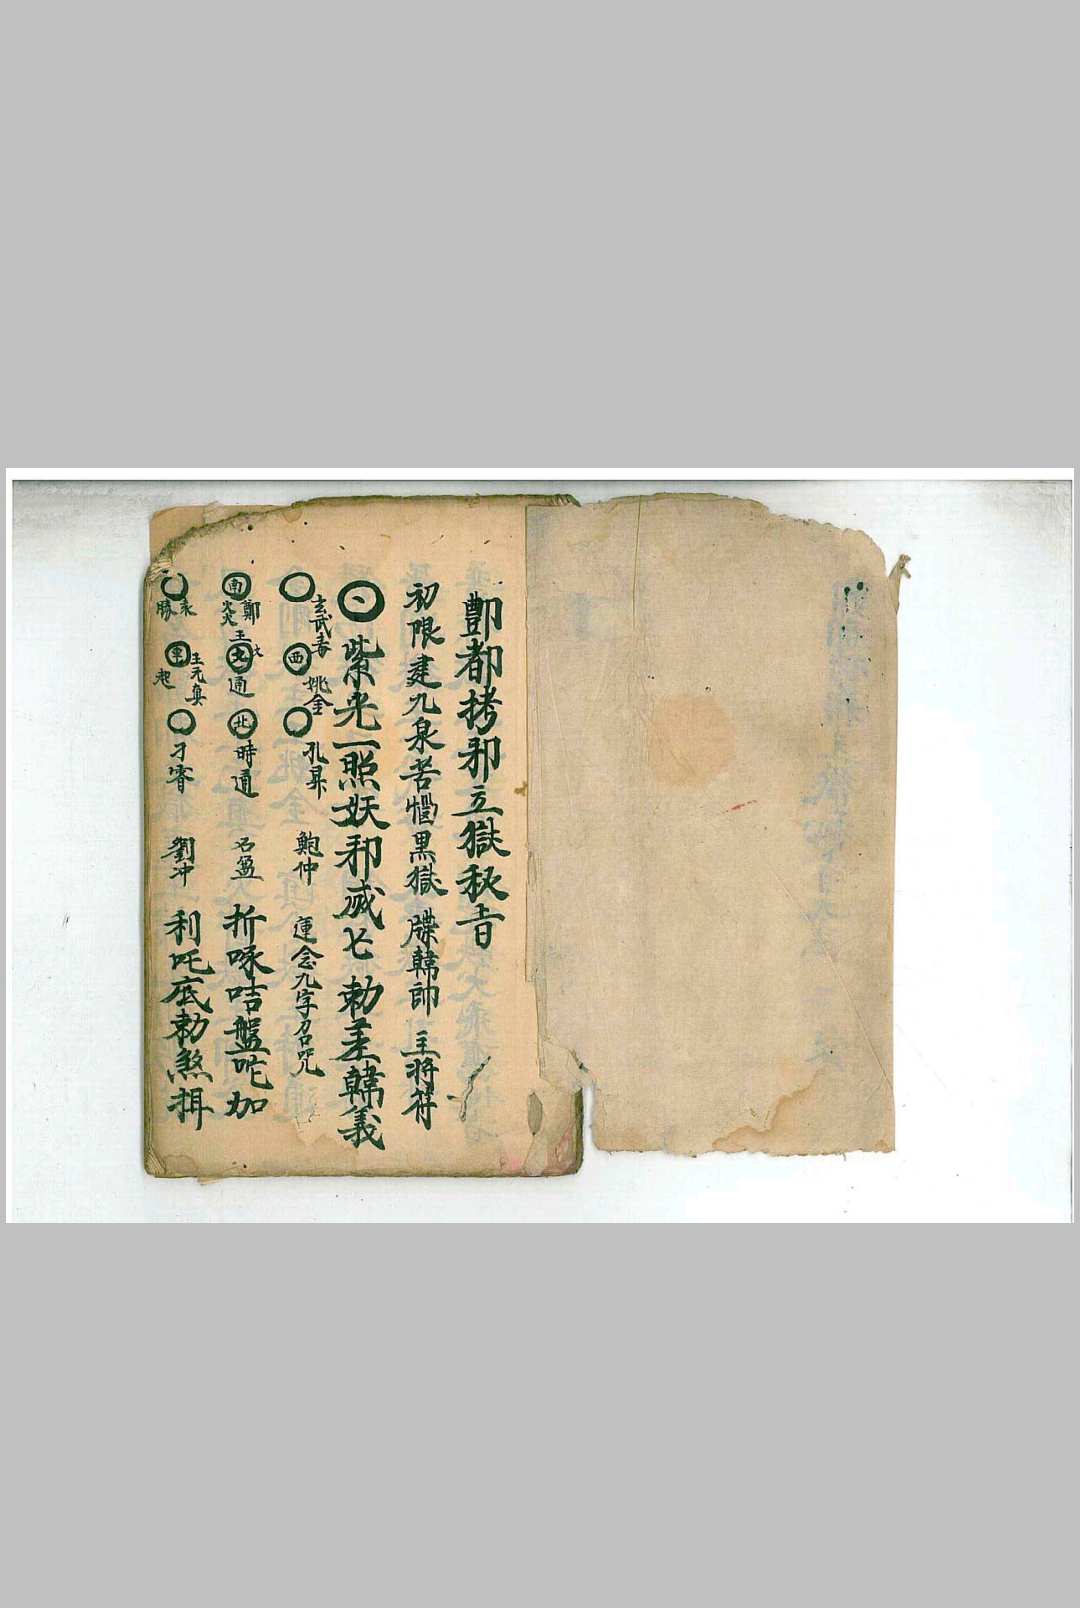 酆都拷邪立獄秘旨
初限建九泉苦惱黑獄 牒韓帥 主將符
紫光一照妖邪滅亡 勅差韓義
玄武毒 西 姚全 孔昇 鮑仲 運念九字召咒
南 鄭 王文通 北 時通 名盈 折啄咭盤咤加
永勝 東 王元真 起 刁睿 劉冲 利吒底勅煞揖